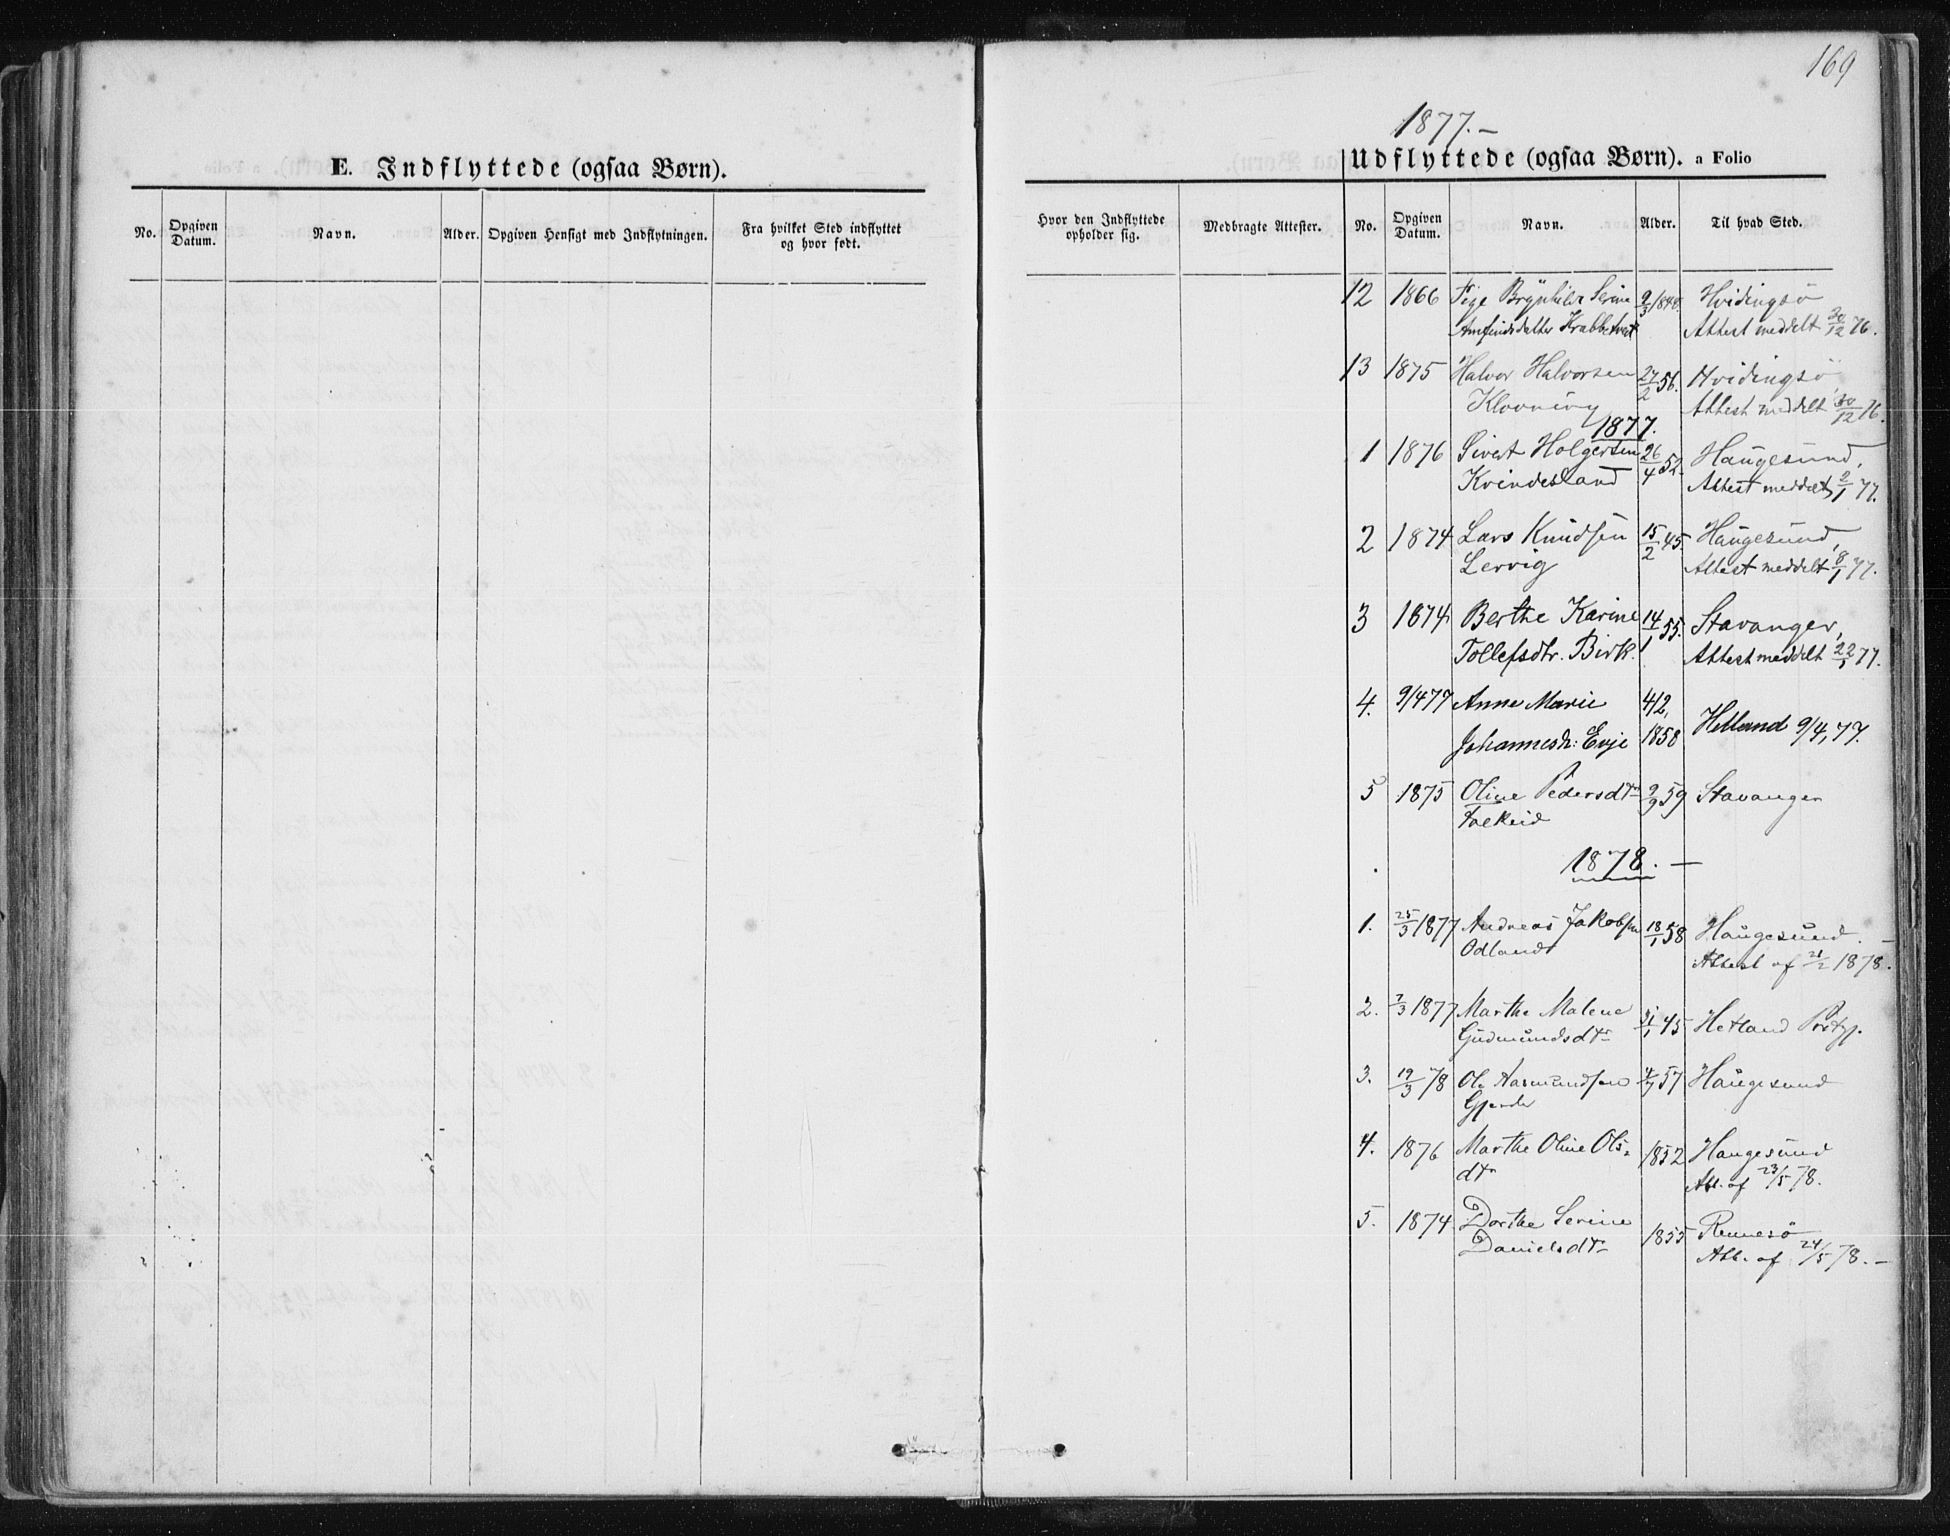 169
1877.—
E. Indflyttede (ogsaa Børn).
No.
Opgiven
Datum.
Navn.
Alder.
Opgiven Hensigt med Indflytningen.
Fra hvilket Sted indflyttet
og hvor født.
Udflyttede (ogsaa Børn). a Folio
Hvor den Indflyttede
opholder sig.
Medbragte Attester.
No.
Opgiven
Datum.
Navn.
Alder.
Til hvad Sted.
12 1866 Pige Brynhild Serine 9/3 1848. Hvidingsö
Arnfindsdatter Krabbetveit Attest meddelt 30/12 76.
13 1875 Halvor Halvorsen 27/2 56. Hvidingsö,
Klovning Attest meddelt 30/12 76.
1877.
1 1876 Sivert Holgersen 26/4 52. Haugesund,
Kvindesland Attest meddelt, 2/1 77.
2 1874 Lars Knudsen 15/2 45. Haugesund,
Lervig Attest meddelt 8/1 77.
3 1874 Berthe Karine 14/1 55. Stavanger,
Tollefsdtr. Birk. Attest meddelt 22/1 77.
4. 9/4 77 Anne Marie 4/2,
Johannesdr: Evje 1858 Hetland 9/4, 77.
5 1875 Oline Pedersdtr 9/9 59 Stavanger
Falkeid
1878. —
1. 25/3 1877 Andreas Jakobsen 18/1 58 Haugesund. —
Odland Attest af 21/2 1878.
2. 7/3 1877 Marthe Malene 31/1 45 Hetland Prstgj.
Gudmundsdtr
3. 19/3 78 Ole Aasmundsen 4/7 57 Haugesund
4. 1876 Marthe Oline Ols- 1852 Haugesund
dtr Att. af 23/5 78.
5. 1874 Dorthe Serine 1855 Rennesö
Danielsdtr Att. af 24/5 78. —